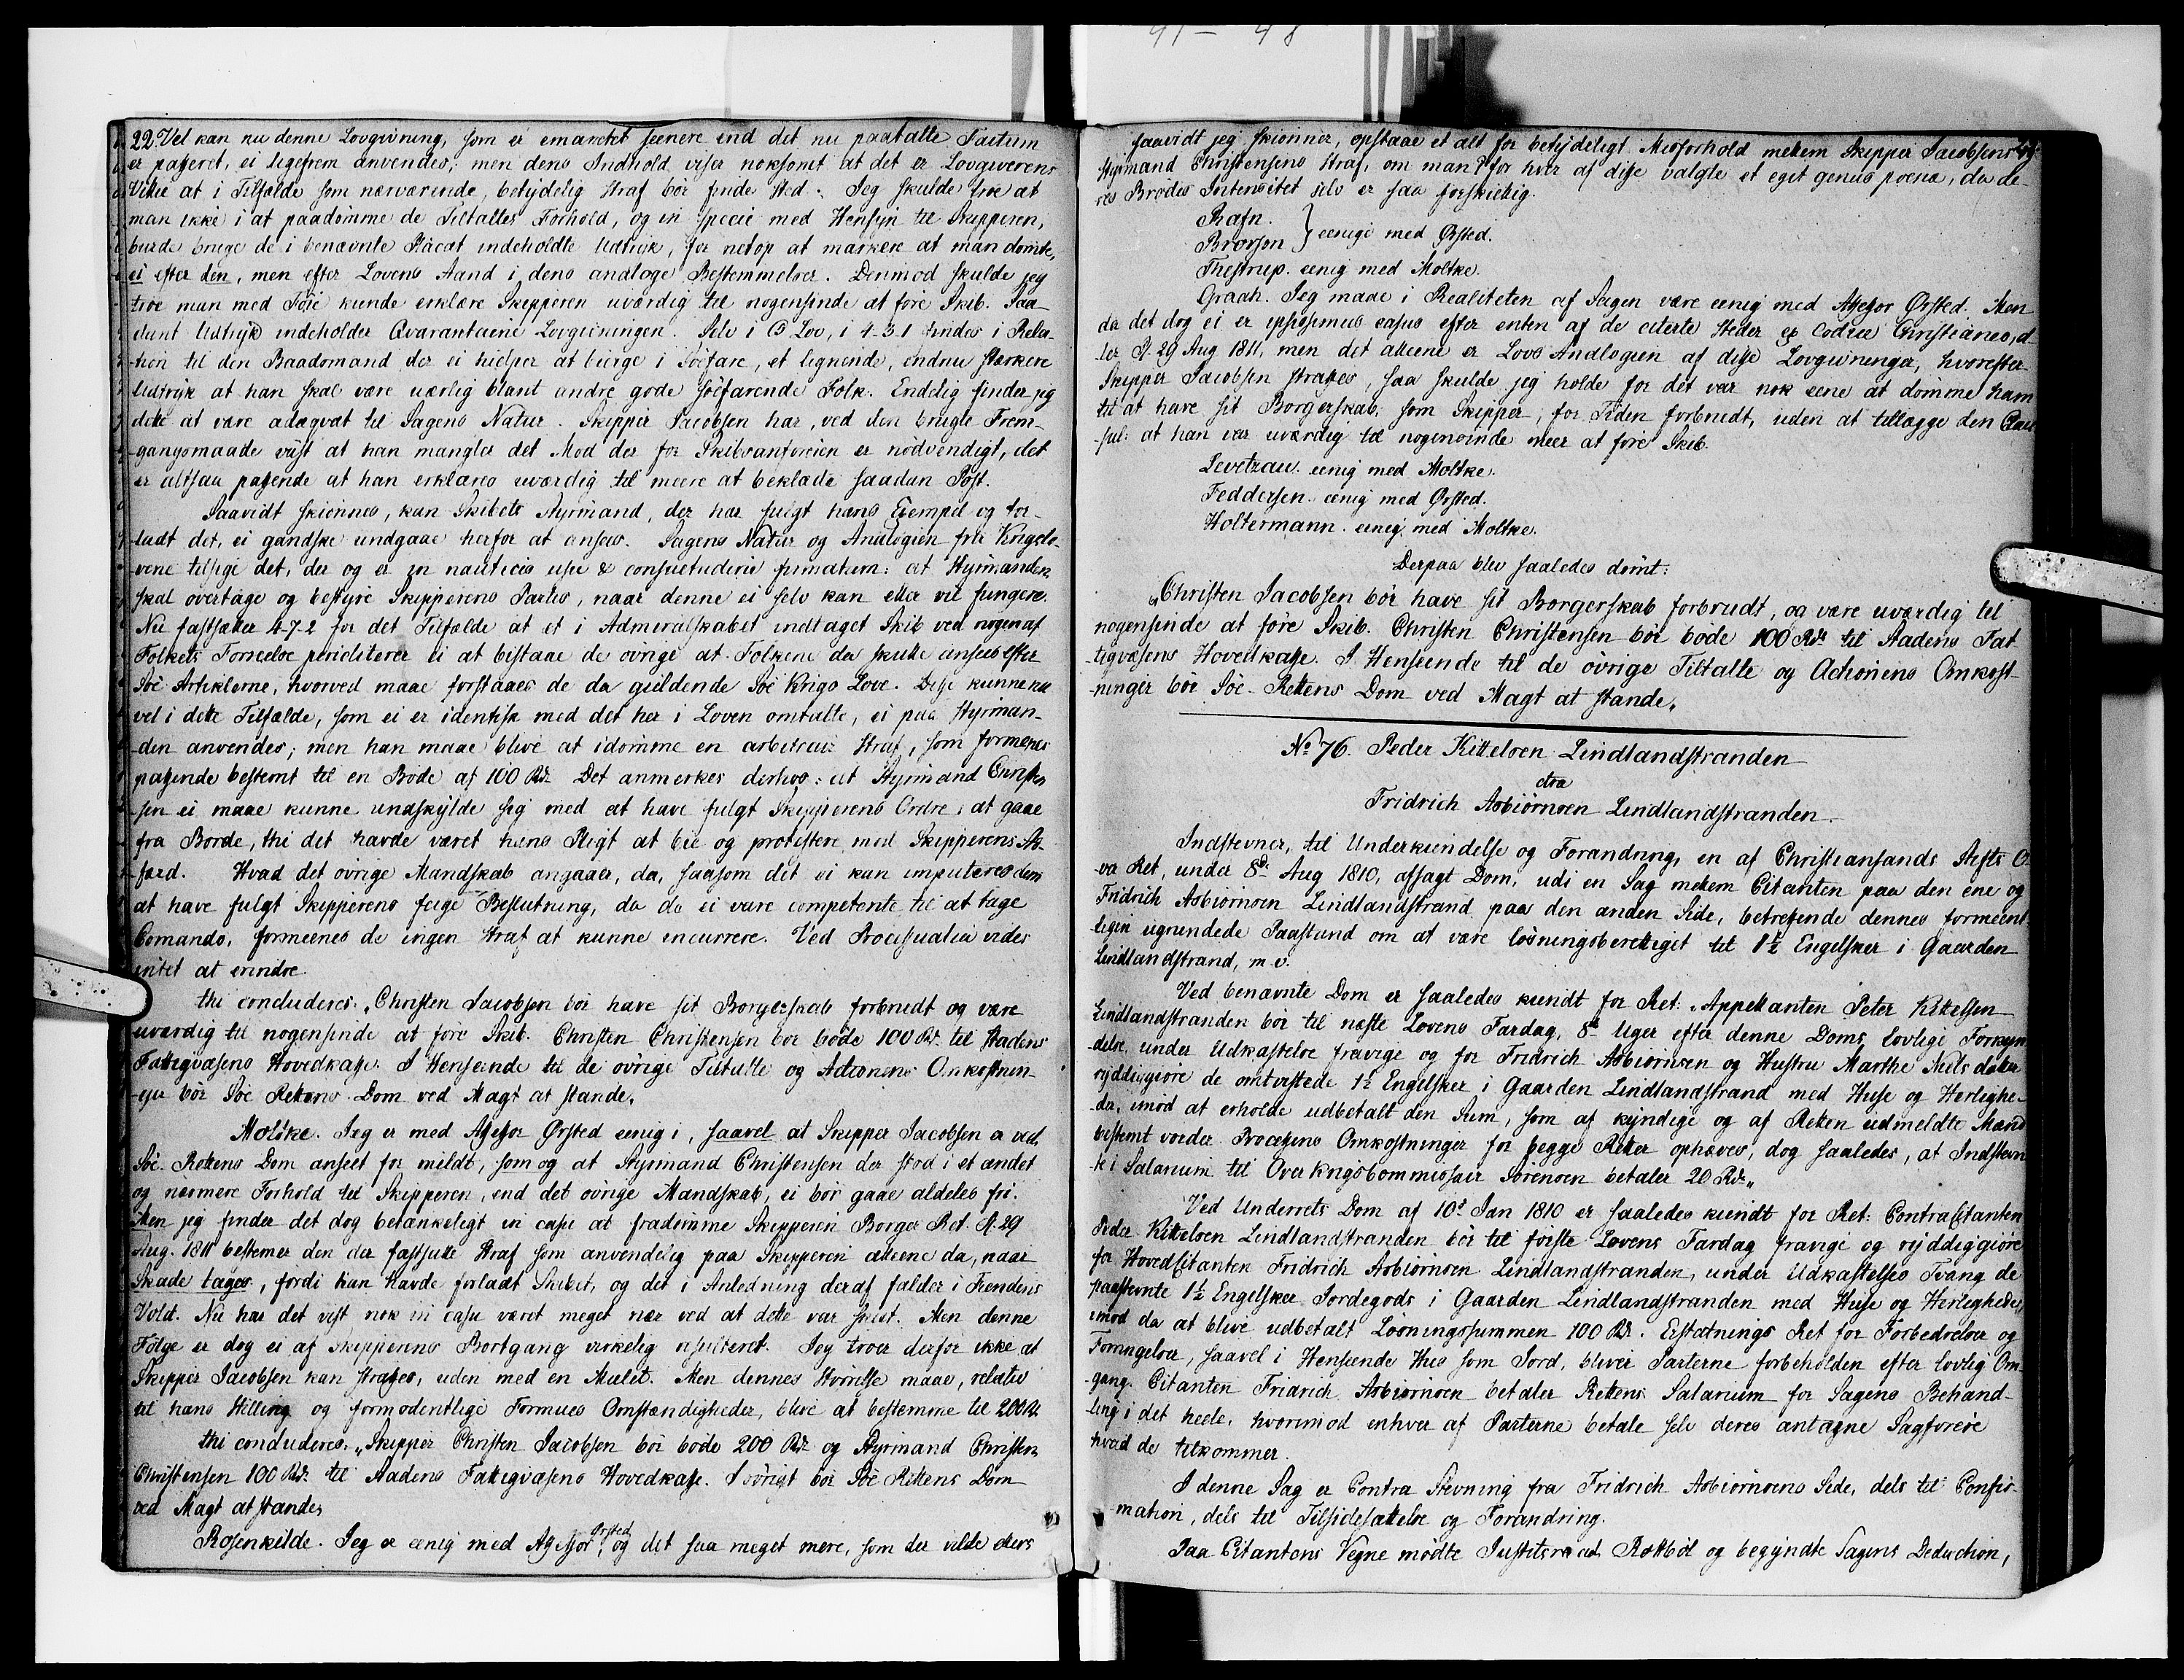 22. Vel kan nu denne Lovgivning, som er emaneret seenere end det nu paatalte Factum
er passeret, ei ligefrem anvendes; men dens Indhold viser noksomt at det er Lovgiverens
Villie at i Tilfælde som nærværende, betydelig Straf bör finde sted. Jeg skulde troe at
man ikke i at paadömme de Tiltaltes Forhold, og in specie med Hensyn til Skipperen,
burde bruge de i benævnte Placat indeholdte Udtryk, for netop at markere at man dömte,
ei efter den, men efter Lovens Aand i dens analoge Bestemmelser. Derimod skulde jeg
troe man med Föie kunde erklære Skipperen uværdig til nogensinde at före Skib. Saa-
dant Udtryk indeholder Qvarantaine Lovgivningen. Selv i D Lov, i 4-3-1 findes i Rela-
tion til den Baadsmand der ei hielper at bierge i Söefare, et lignende, endnu stærkere
Udtryk at han skal være uærlig blant andre gode söefarende Folk. Endelig finder jeg
dette at være adæqvat til Sagens Natur. Skipper Jacobsen har, ved den brugte Frem-
gangsmaade viist at han mangler det Mod der for Skibsanföreren er nödvendigt, det
er altsaa passende at han erklæres uværdig til meere at beklæde saadan Post.
Saavidt skiönnes, kan Skibets Styrmand, der har fulgt hans Exempel og for-
ladt det, ei gandske undgaae herfor at ansees. Sagens Natur og Analogien fra Krigslo-
vene tilsige det, der og er in nauticis usu & consuetudine firmatum: at Styrmanden
skal overtage og bestyre Skipperens Partes, naar denne ei selv kan eller vil fungere.
Nu fastsætter 4-7-2 for det Tilfælde at et i Admiralskabet indtaget Skib ved nogen af
Folkets Forseelse periditerer ei at bistaae de övrige at Folkene da skulle ansees efter
Söe Artiklerne, hvorved maae forstaaes de da gieldende Söe Krigs Love. Disse kunne nu
vel i dette Tilfælde, som ei er identisk med det her i Loven omtalte, ei paa Styrman-
den anvendes; men han maae blive at idömme en arbitrair Straf, som formenes
passende bestemt til en Bøde af 100 Rd. Det anmerkes derhos: at Styrmand Christen-
sen ei maae kunne undskylde sig med at have fulgt Skipperens Ordre: at gaae
fra Borde, thi det havde været hans Pligt at blie og protestere mod Skipperens Ad-
færd. Hvad det övrige Mandskab angaaer, da, saasom det ei kan imputeres dem
at have fulgt Skipperens feige Beslutning, da de ei vare competente til at tage
Comando, formeenes de ingen Straf at kunne incurrere. Ved Processualia vides
intet at erindre.
thi concluderes: „Christen Jacobsen bör have sit Borgerskab forbrudt og være
uværdig til nogensinde at före Skib. Christen Christensen bör böde 100 Rd. til Stadens
Fattigvæsens Hovedkasse. I Henseende til de övrige Tiltalte og Actionens Omkostnin-
ger bör Söe Rettens Dom ved Magt at stande.
Moltke. Jeg er med Assessor Ørsted eenig i, saavel at Skipper Jacobsen er ved
Söe-Rettens Dom anseet for mildt, som og at Styrmand Christensen der stod i et andet
og nærmere Forhold til Skipperen, end det övrige Mandskab, ei bör gaae aldeles fri.
Men jeg finder det dog betænkeligt in casu at fradömme Skipperen Borger Ret. Pl. 29
Aug. 1811 bestemer den der fastsatte Straf som anvendelig paa Skipperen alleene da, naar
Skade tages, fordi han havde forladt Skibet, og det i Anledning deraf falder i Fiendens
Vold. Nu har det vist nok in casu været meget nær ved at dette var skeet. Men denne
Fölge er dog ei af Skipperens Bortgang virkelig resulteret. Jeg troer derfor ikke at
Skipper Jacobsen kan straffes, uden med en Mulct. Men dennes Störrelse maae, relativ
til hans Stilling og formodentlige Formues Omstændigheder, blive at bestemme til 200 Rd.
thi concluderes: „Skipper Christen Jacobsen bör böde 200 Rd. og Styrmand Christen
Christensen 100 Rd. til Stadens Fattigvæsens Hovedkasse. I övrigt bör Söe Rettens Dom
ved Magt at stande„
Rosenkilde. Jeg er eenig med Assessor Ørsted, og det saa meget mere, som der vilde ellers
saavidt jeg skiönner, opstaae et alt for betydeligt Misforhold mellem Skipper Jacobsens og
Styrmand Christensens Straf, om man for hver af disse valgte et eget genus poena, da de-
res Brødes Intensitet selv er saa forskiellig.
Rafn.
Brorson } eenige med Ørsted.
Thestrup. eenig med Moltke.
Graah. Jeg maae i Realiteten af Sagen være eenig med Assessor Ørsted. Men
da det dog ei er ipsissimus casus efter enten af de citerte Steder ex Codice Christianeo, el-
ler Pl. 29 Aug 1811, men det alleene er Lovs Analogien af disse Lovgivninger, hvorefter
Skipper Jacobsen straffes, saa skulde jeg holde for det var nok eene at dömme ham
til at have sit Borgerskab, som Skipper, for Tiden forbrudt, uden at tillægge den Clau-
sul: at han var uværdig til nogensinde meer at före Skib.
Levetzau. eenig med Moltke.
Feddersen. eenig med Ørsted.
Holtermann. eenig med Moltke.
Derpaa blev saaledes dömt:
„Christen Jacobsen bör have sit Borgerskab forbrudt, og være uværdig til
nogensinde at före Skib. Christen Christensen bör böde 100 Rd. til Stadens Fat-
tigvæsens Hovedkasse. I Henseende til de övrige Tiltalte og Actionens Omkost-
ninger bör Söe-Rettens Dom ved Magt at stande„
No 76. Peder Kittelsen Lindlandstranden
ctra
Fridrich Asbiörnsen Lindlandstranden.
Indstevner, til Underkiendelse og Forandring, en af Christiansands Stifts O-
ver Ret, under 8de Aug 1810, afsagt Dom, udi en Sag mellem Citanten paa den ene og
Fridrich Asbiörnsen Lindlandstrand paa den anden Side, betreffende dennes formeent-
ligen ugrundede Paastand om at være lösningsberettiget til 1½ Engelsker i Gaarden
Lindlandstrand, m.v.
Ved benævnte Dom er saaledes kiendt for Ret: „Appellanten Peter Kittelsen
Lindlandstranden bör til næste Lovens Fardag, 8te Uger efter denne Doms lovlige Forkyn-
delse, under Udkastelse fravige og for Fridrich Asbiörnsen og Hustru Marthe Niels datter
ryddiggiöre de omtvistede 1½ Engelsker i Gaarden Lindlandstrand med Huse og Herlighe-
der, imod at erholde udbetalt den Sum, som af kyndige og af Retten udmeldte Mænd
bestemt vorder. Processens Omkostninger for begge Retter ophæves, dog saaledes, at Indstevn-
te i Salarium til Over Krigscommissair Sörensen betaler 20 Rd.„
Ved Underrets Dom af 10de Jan 1810 er saaledes kiendt for Ret: Contracitanten
Peder Kittelsen Lindlandstranden bör til förste Lovens Fardag fravige og ryddiggiöre
for HovedCitanten Fridrich Asbiörnsen Lindlandstranden, under Udkastelses Tvang de
paastevnte 1½ Engelsker Jordegods i Gaarden Lindlandstranden med Huse og Herligheder,
imod da at blive udbetalt Lösningssummen 100 Rd. Erstatnings Ret for Forbedrelser og
Forringelser, saavel i Henseende Hus som Jord, bliver Parterne forbeholden efter lovlig Om-
gang. Citanten Fridrich Asbiörnsen betaler Rettens Salarium for Sagens Behand-
ling i det heele, hvorimod enhver af Parterne betale selv deres antagne Sagförere
hvad de tilkommer.
I denne Sag er Contra Stevning fra Fridrich Asbiörnsens Side, dels til Confir-
mation, dels til Tilsidesættelse og Forandring.
Paa Citantens Vegne mödte Justitsraad Rottböl og begyndte Sagens Deduction,